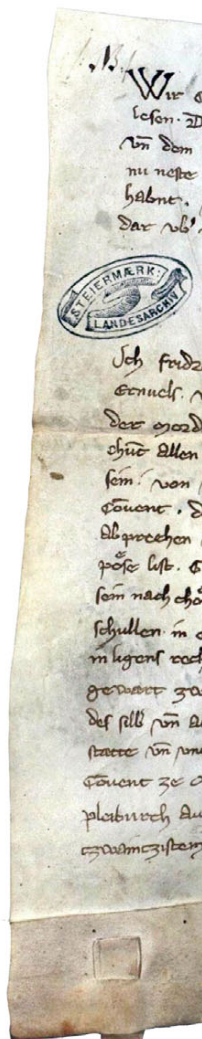 .B.
Wir
lesen. D
vn̄ dem
nu neste
habnt.
dar vb'
STEIERMÆRK:
LANDESARCHIV
Ich Fridr
der mord
chūt allen
sein. von
Cōuent. d
Absprechen
pöse list.
sein nach chö
schullen. in
in ligens rech
gewart zw
des silb vn̄ a
staete vn̄ vn
Cōuent ze
pleiburch Au
tzwaintzistem